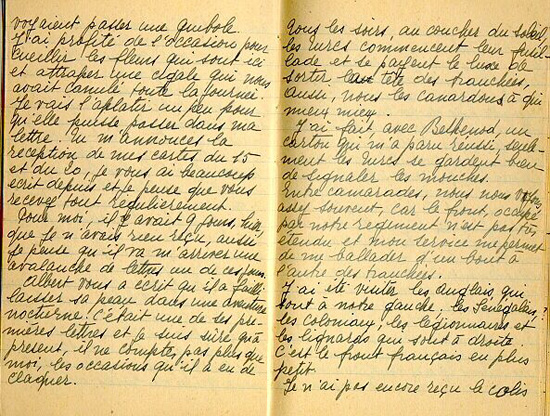 voyaient passer une guibole
J'ai profité de l'occasion pour
cueillir les fleurs qui sont ici
et attraper une cigale qui nous
avait canulé toute la journée.
Je vais l'aplatir un peu pour
qu'elle puisse passer dans ma
lettre. Tu m'annonces la
réception de mes cartes du 15
et du 20, je vous ai beaucoup
écrit depuis et je pense que vous
recevez tout régulièrement.
Pour moi, il y avait 9 jours, hier,
que je n'avais rien reçu, aussi
je pense qu'il va m'arriver une
avalanche de lettres un de ces jours.
Albert vous a écrit qu'il a failli
laisser sa peau dans une aventure
nocturne. C'était une de ses pre-
mières lettres et je suis sûre qu'à
présent, il ne compte, pas plus que
moi, les occasions qu'il a eu de
claquer.
Tous les soirs, au coucher du soleil,
les turcs commencent leur fusil-
lade et se payent le luxe de
sortir la tête des tranchées,
aussi, nous les canardons à qui
mieux mieux.
J'ai fait, avec Belkenod, un
carton qui m'a paru réussi, seule-
ment les turcs se gardent bien
de signaler les mouches.
Entre camarades, nous nous voyons
assez souvent, car le front, occupé
par notre régiment n'est pas très
étendu et mon service me permet
de me ballader d'un bout à
l'autre des tranchées.
J'ai été visiter les anglais qui
sont à notre gauche. les Sénégalais,
les coloniaux, les légionnaires et
les lignards qui sont à droite.
C'est le front français en plus
petit.
Je n'ai pas encore reçu le colis